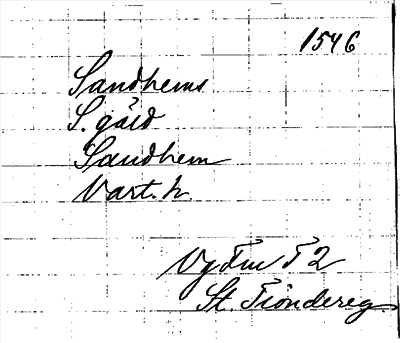 1546
Sandhems
S. gård
Sandhem
Vart. h
Vg Fru F 2
St. Tiondereg.